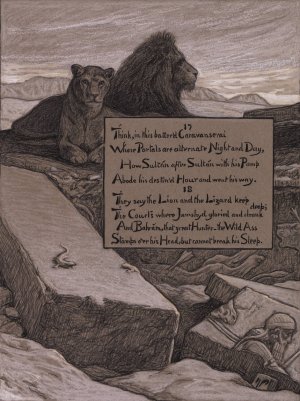 17
Think, in this batter'd Caravanserai
Whose Portals are alternate Night and Day,
How Sultán after Sultán with his Pomp
Abode his destin'd Hour and went his way.
18
They say the Lion and the Lizard keep
The Courts where Jamshýd gloried and drank deep;
And Bahrám, that great Hunter—the Wild Ass
Stamps o'er his Head, but cannot break his Sleep.